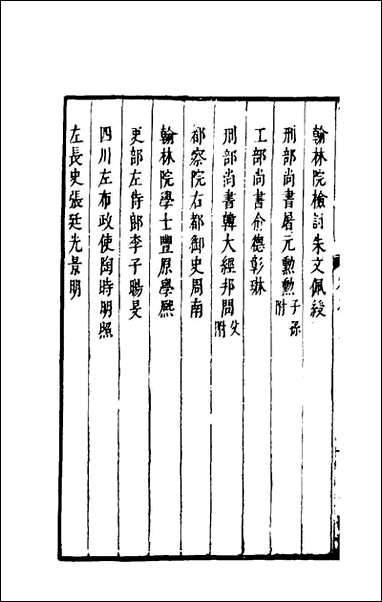 翰林院檢討朱文佩綬
刑部尚書屠元勳勳子孫附
工部尚書俞德彰琳
刑部尚書韓大經邦問父附
都察院右都御史周南
翰林院學士豐原學熙
吏部左侍郎李子暘旻
四川左布政使陶時明照
左長史張廷光景明